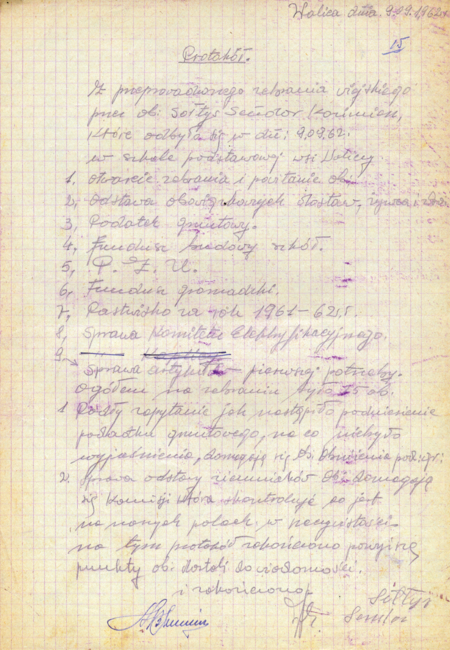 Wolica dnia 9.09.1962r.
15
Protokół.
Z przeprowadzonego zebrania wiejskiego
przez ob. Sołtys Sendor Kazimierz,
które odbyło się w dn: 9.09.62.
w szkole podstawowej wsi Wolicy
1, otwarcie zebrania i powitanie ob.
2, odstawa obowiązkowych dostaw, żywca i
3, Podatek gruntowy.
4, Fundusz budowy szkół.
5, P. Z. U.
6, Fundusz gromadzki.
7, Pastwisko za rok 1961-62r.
8, Sprawa Komitetu Elektryfikacyjnego.
9,
Sprawa artykułów pierwszej potrzeby.
ogółem na zebraniu było 15 ob.
1 Padły zapytanie jak nastąpiło podniesienie
podatku gruntowego, na co niebyło
wyjaśnienia, domagają się ob. obniżenia
2. Sprawa odstawy ziemniaków ob. domagają
się Komisji która skontroluje co jest
na naszych polach w rzeczywistości
na tym protokół zakończono powyższe
punkty ob. dostali do wiadomości.
i zakończono
Sołtys
Sendor